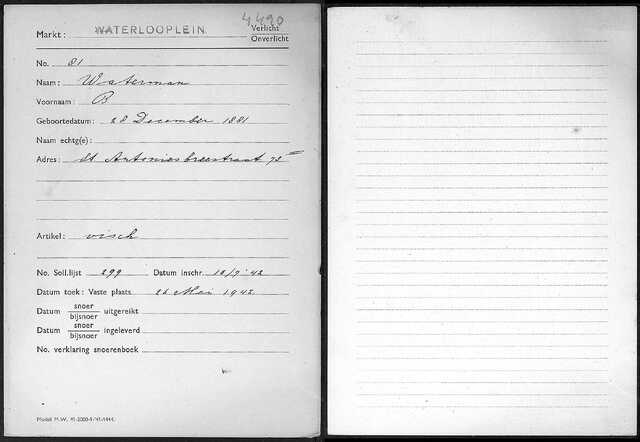 4.490
Markt: WATERLOOPLEIN Verlicht
Onverlicht
No. 81
Naam: Waterman
Voornaam: B
Geboortedatum: 28 December 1881
Naam echtg(e):
Adres: St Antoniesbreestraat 72
Artikel: visch
No. Soll.lijst 299 Datum inschr. 18/9 '42
Datum toek: Vaste plaats 26 Mei 1942
Datum snoer/bijsnoer uitgereikt
Datum snoer/bijsnoer ingeleverd
No. verklaring snoerenboek
Model M.W.